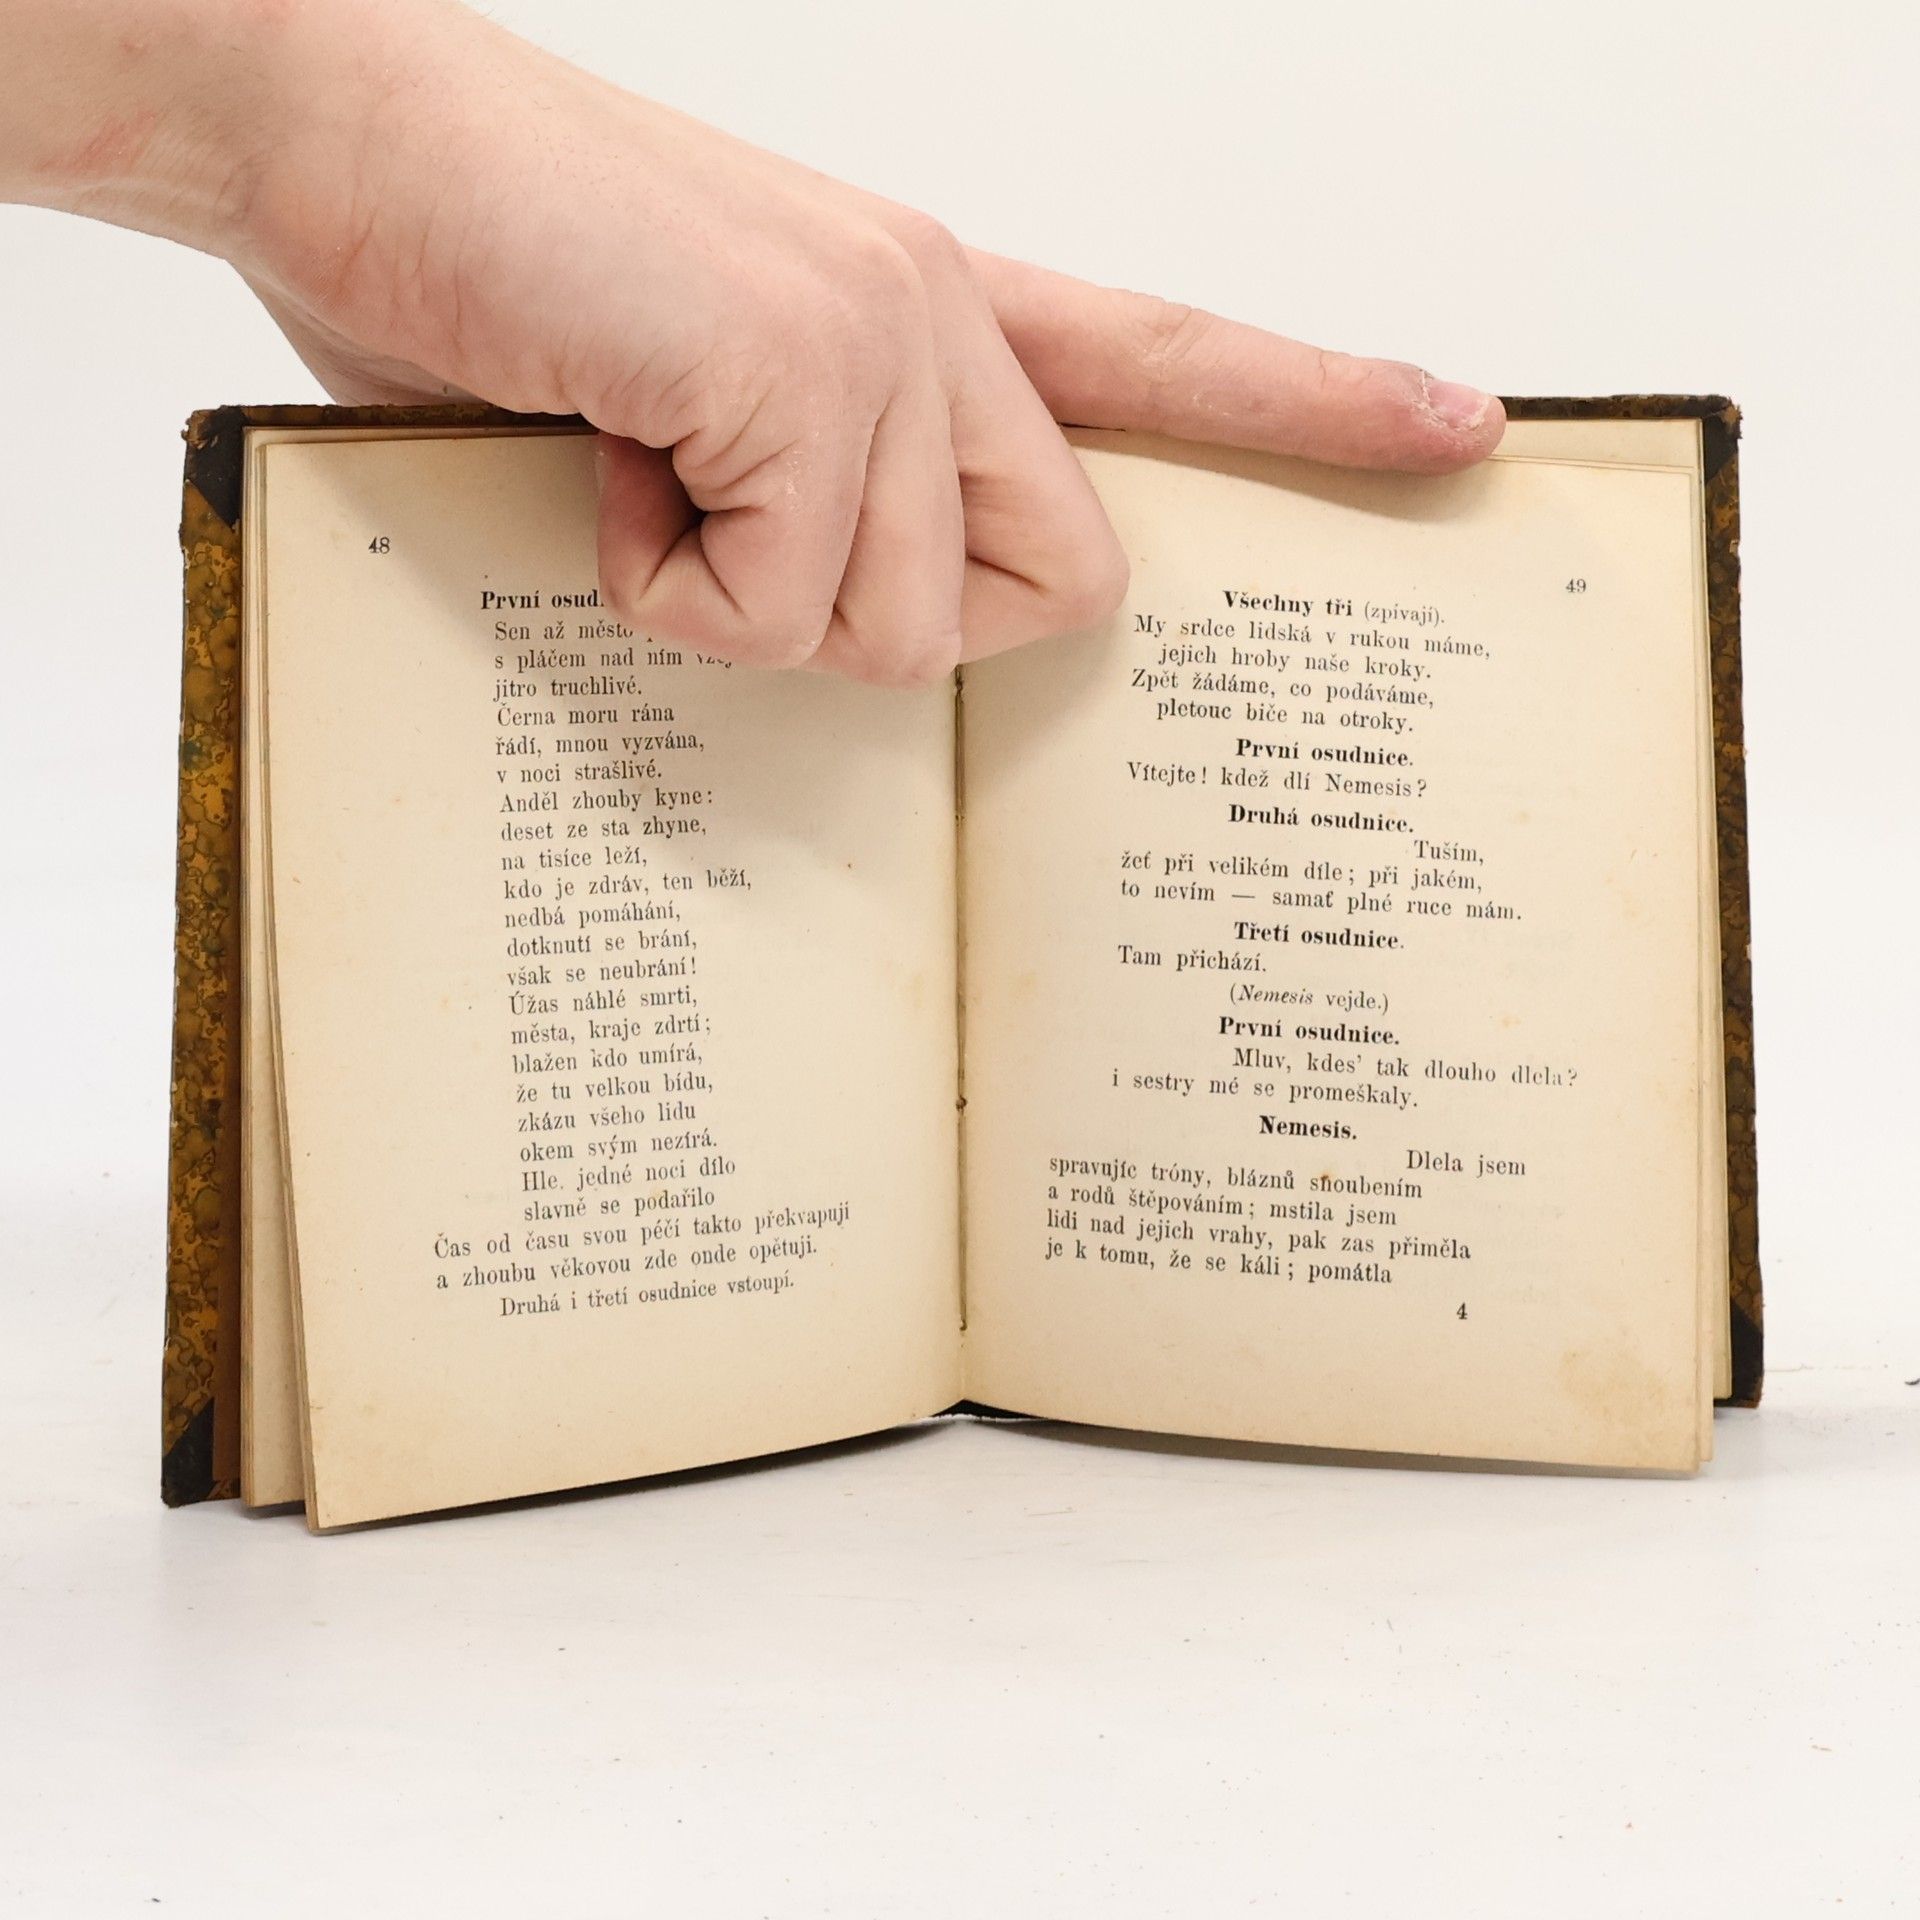 48
První
Sen až
s pláčem nad ním
jitro truchlivé.
Černa moru rána
řádí, mnou vyzvána,
v noci strašlivé.
Anděl zhouby kyne:
deset ze sta zhyne,
na tisíce leží,
kdo je zdráv, ten běží,
nedbá pomáhání,
dotknutí se brání,
však se neubrání!
Úžas náhlé smrti,
města, kraje zdrtí;
blažen kdo umírá,
že tu velkou bídu,
zkázu všeho lidu
okem svým nezírá.
Hle. jedné noci dílo
slavně se podařilo
Čas od času svou péčí takto překvapuji
a zhoubu věkovou zde onde opětuji.
Druhá i třetí osudnice vstoupí.
49
Všechny tři (zpívají).
My srdce lidská v rukou máme,
jejich hroby naše kroky.
Zpět žádáme, co podáváme,
pletouc biče na otroky.
První osudnice.
Vítejte! kdež dlí Nemesis?
Druhá osudnice.
Tuším,
žeť při velikém díle; při jakém,
to nevím — samať plné ruce mám.
Třetí osudnice.
Tam přichází.
(Nemesis vejde.)
První osudnice.
Mluv, kdes' tak dlouho dlela?
i sestry mé se promeškaly.
Nemesis.
Dlela jsem
spravujíc tróny, bláznů snoubením
a rodů štěpováním; mstila jsem
lidi nad jejich vrahy, pak zas přiměla
je k tomu, že se káli; pomátla
4